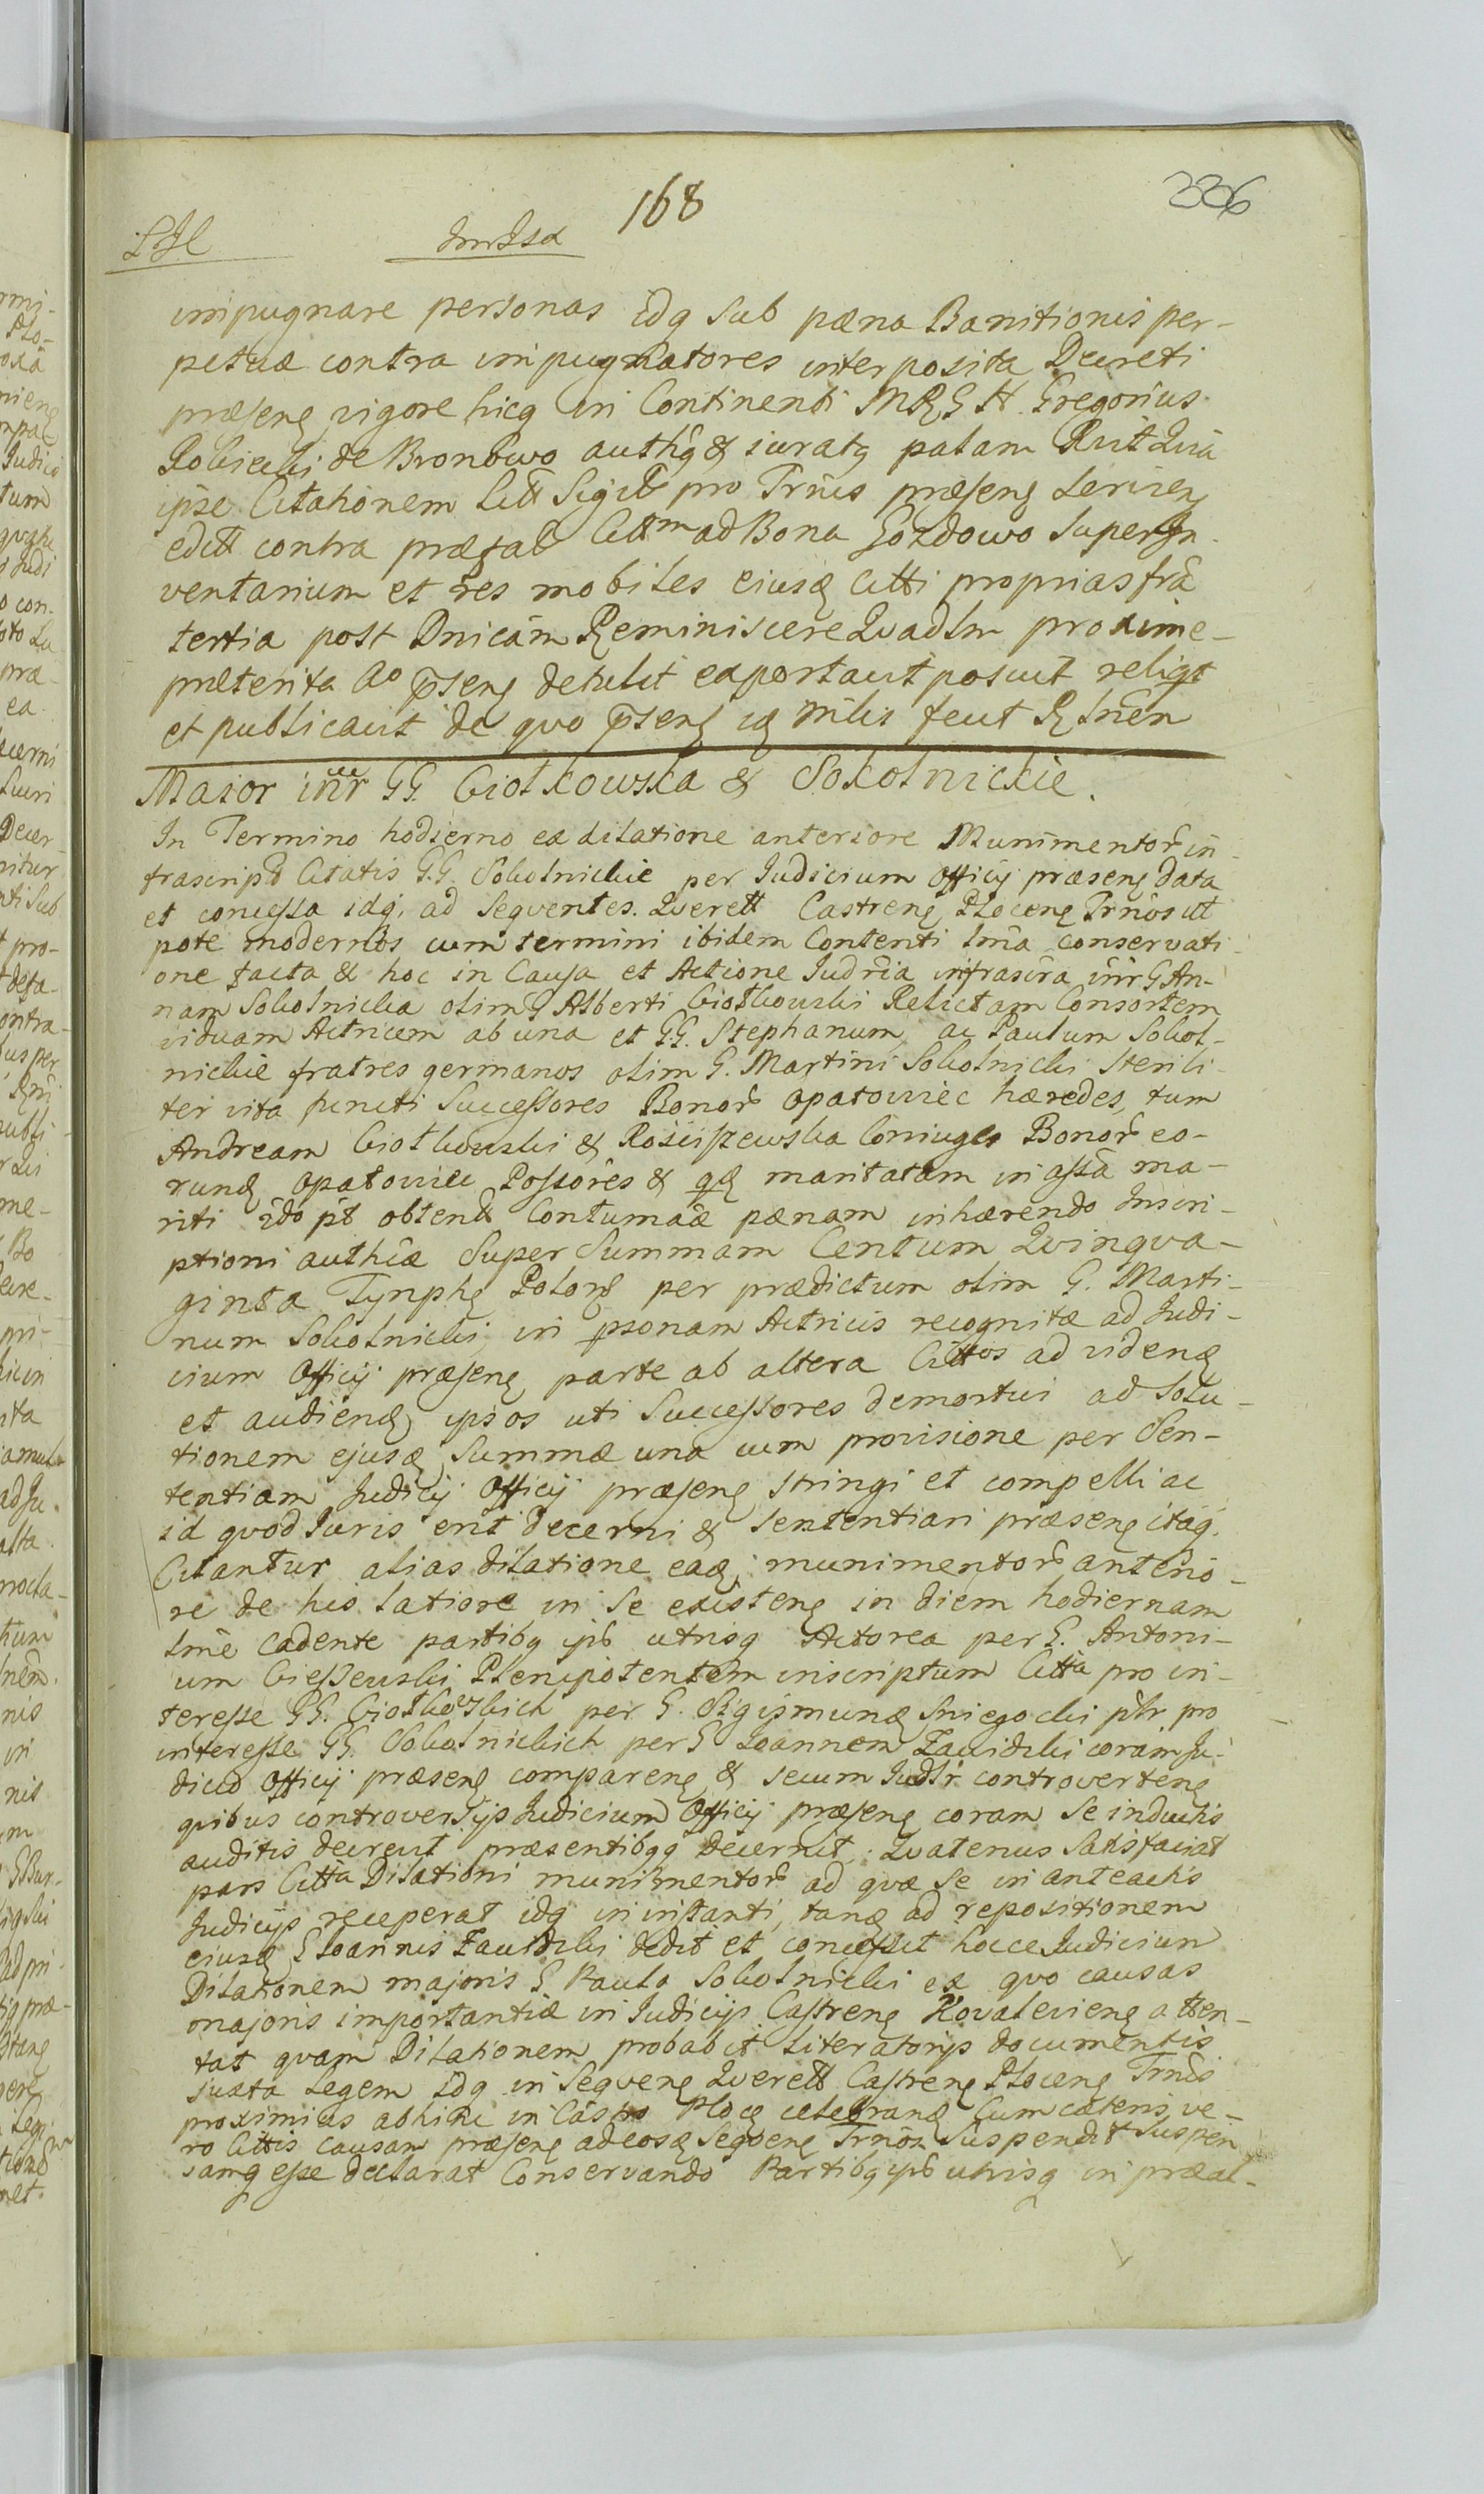 168
226
impugnare personas idq sub pæna Banitionis per-
petuæ contra impugnatores interposita Decreti
præseng vigore hicq in Continenti MRGH Gregorius
de Bronowo authq & iuratq palam Rut Quia
ipse Citationem Litt Sigill pro Trnis præseng
edctt contra præfat Cittm ad Bona Gozdowo super In-
ventarium et res mobiles eiusq Citti proprias fra
tertia post Dnicam Reminiscere Quadlm proxime-
præterita Ao pseng detulit exportavit posuit reliqt
et publicavit de quo pseng iq Mlis fecit Rlnen
Maior intr GG. Ciołkowska & Sokolnickie.
In Termino hodierno ex dilatione anteriore Munimentor in-
frascript Citatis G.G. Sokolnickie per Judicium Officij præseng data
et concessa idq. ad Seqventes. Qverell Castreng Ploceng Trnos ut
pote modernos cum termini ibidem Contenti lma conservati-
one facta & hoc in Causa et Actione Iudria infrascra intr G An-
nam Sokolnicka olim G Alberti Ciołkowski Relictam Consortem
viduam Actricem ab una et G.G. Stephanum, ac Paulum Sokol-
nickie fratres germanos olim G. Martini Sokolnicki sterili-
ter vita functi Successores Bonor Opatowiec hæredes, tum
Andream Ciołkowski & Rościszewska Coniuges Bonor eo-
rundq Opatowiec Possores & qq maritatam in assa ma-
riti ido pt obtend Contumaæ pænam inhærendo Inscri-
ptioni authcæ Super Summam Centum Qvinqva-
ginta Tynphq Polonq per prædictum olim G. Marti-
num Sokolnicki in psonam Actricis recognitæ ad Judi-
cium Officij præseng parte ab altera Cittos ad videnq
et audienq ipsos uti Successores demortui ad Solu-
tionem ejusq Summæ una cum provisione per Sen-
tentiam Judicij Officij præseng stringi et compelli ac
id qvod Iuris erit decerni & sententiari præseng itaq.
Citantur alias dilatione eaq. munimentor anterio-
re de his latiore in se existeng in diem hodiernam
lme cadente partibq ipb utrisq Actorea per G. Antoni-
um Cieszewski Plenipotentem inscriptum Citta pro in-
teresse GG. Ciołkowskich per G. Sigismundq Sniegocki ptr pro
interesse GG. Sokolnickich per G Ioannem Zawidzki coram Ju-
dicio Officij præseng compareng & secum Iudlr controverteng
quibus controversijs Judicium Officij præseng coram se inductis
auditis decrevit præsentibqq decernit: Quatenus Satisfaciat
pars Citta Dilationi munimentor ad quæ se in anteactis
Judicijs receperat idq in instanti, tanq ad repositionem
ejusq G Ioannis Zawidzki dedit et concessit hocce Judicium
Dilationem majoris G Paulo Sokolnicki ex quo causas
majoris importantiæ in Judicijs Castreng Kovalevieng atten-
tat quam Dilationem probabit literatorijs documentis
juxta Legem idq in Seqveng Qverell Castreng Ploceng Trnis
proximius abhinc in Castro Plocq celebrandq Cum cæteris ve-
ro Cittis causam præseng ad eosq Seqveng Trnos Suspendit Suspen
samq esse declarat Conservando Partibq ipb utrisq in præal-